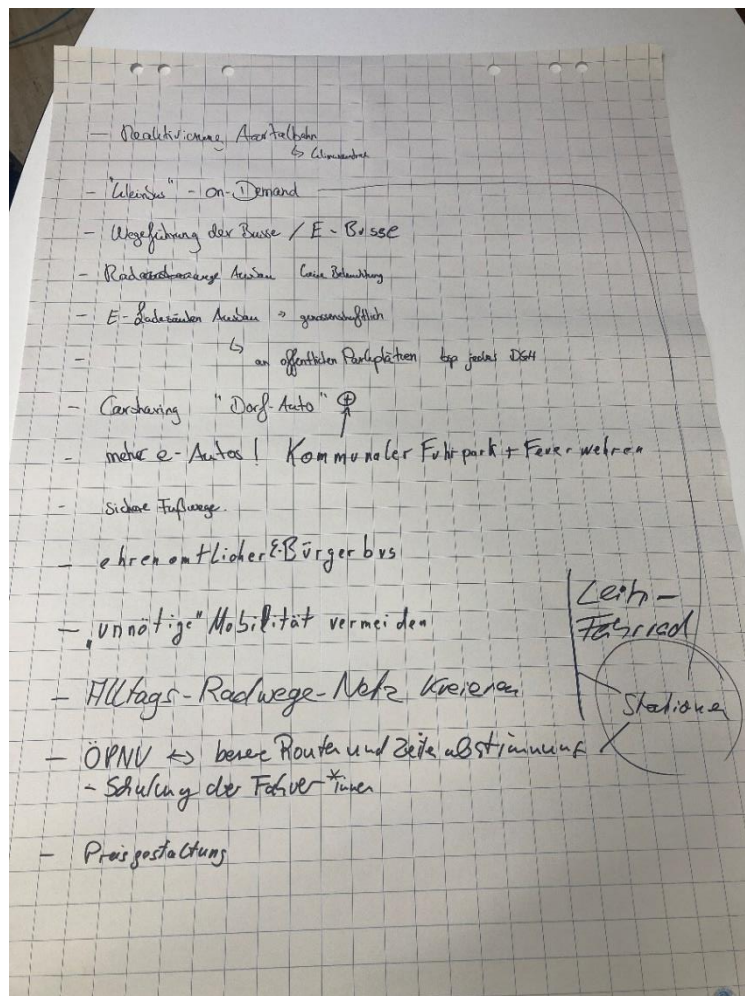 - Reaktivierung Aartalbahn
↳
- "Kleinbus" - on-Demand
- Wegeführung der Busse / E-Busse
- Ausbau keine Beleuchtung
- E-Ladesäulen Ausbau → genossenschaftlich
-
↳ an öffentlichen Parkplätzen bsp jedes DGH
- Carsharing "Dorf-Auto" ⊕
- mehr e-Autos! Kommunaler Fuhrpark + Feuerwehren
- sichere Fußwege.
- ehrenamtlicher E-Bürgerbus
- „unnötige" Mobilität vermeiden
Leih-
Fahrrad
Stationen
- Alltags-Radwege-Netz kreieren
- ÖPNV ↔ bessere Routen und Zeitenabstimmung
- Schulung der Fahrer*innen
- Preisgestaltung